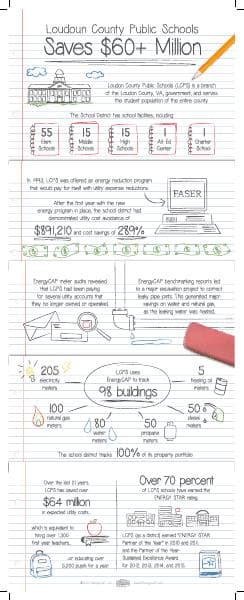 Loudoun County Public Schools
Saves $60+ Million
Loudoun County Public Schools (LCPS) is a branch
of the Loudoun County, VA, government, and serves
the student population of the entire county.
The School District has school facilities, including:
55
Elem
Schools
15
Middle
Schools
15
High
Schools
1
Alt Ed
Center
1
Charter
School
In 1993, LCPS was offered an energy reduction program
that would pay for itself with utility expense reductions.
FASER
After the first year with the new
energy program in place, the school district had
demonstrated utility cost avoidance of
$891,210 and cost savings of 28.9%
EnergyCAP meter audits revealed
that LCPS had been paying
for several utility accounts that
they no longer owned or operated.
EnergyCAP benchmarking reports led
to a major excavation project to correct
leaky pipe joints. This generated major
savings on water and natural gas,
as the leaking water was heated.
205
electricity
meters
LCPS uses
EnergyCAP to track
98 buildings
5
heating oil
meters
100
natural gas
meters
80
water
meters
50
propane
meters
50
diesel
meters
The school district tracks 100% of its property portfolio
Over the last 21 years,
LCPS has saved over
$64 million
in expected utility costs...
which is equivalent to
hiring over 1,300
first year teachers...
...or educating over
5,200 pupils for a year
Over 70 percent
of LCPS schools have earned the
ENERGY STAR rating.
LCPS (as a district) earned "ENERGY STAR
Partner of the Year" in 2010 and 2011,
and the Partner of the Year-
Sustained Excellence Award
for 2012, 2013, 2014, and 2015.